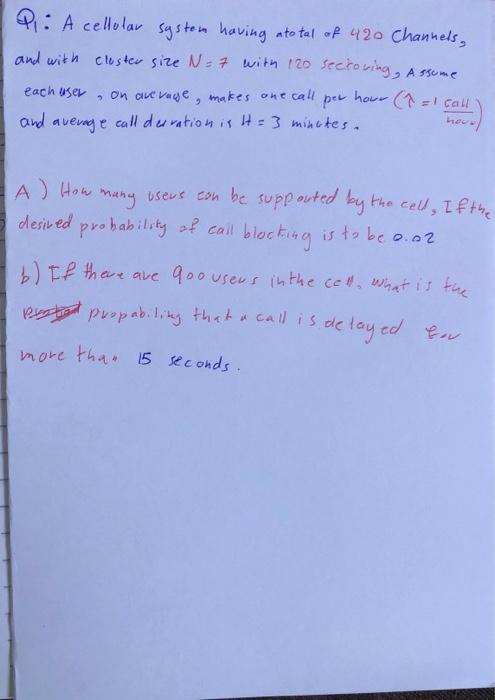 Q1: A cellular system having atotal of 420 Channels,
and with cluster size N = 7 with 120 sectoring, Assume
each user, on average, makes one call per hour (↑ = 1 call/hour)
and average call duration is H = 3 minutes.
A) How many users can be suppouted by the cell, If the
desired probability of call blocking is to be 0.02
b) If there are 900 users in the cell, what is the
propability that a call is delayed for
more than 15 seconds.